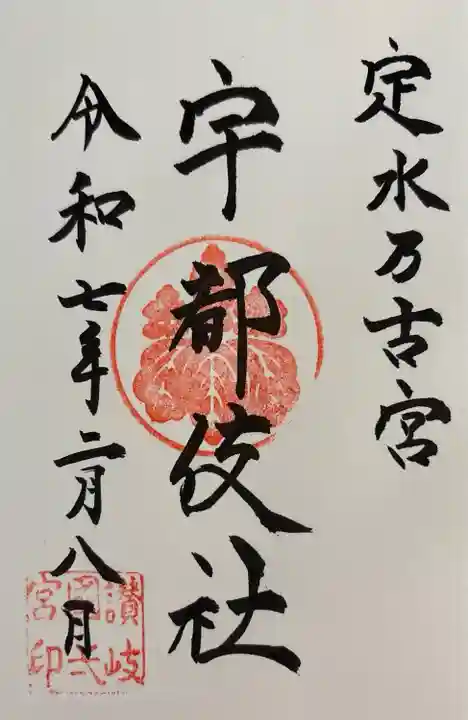 定水万古宮
宇都伎社
令和七年二月八日
讃岐
國弐
宮印